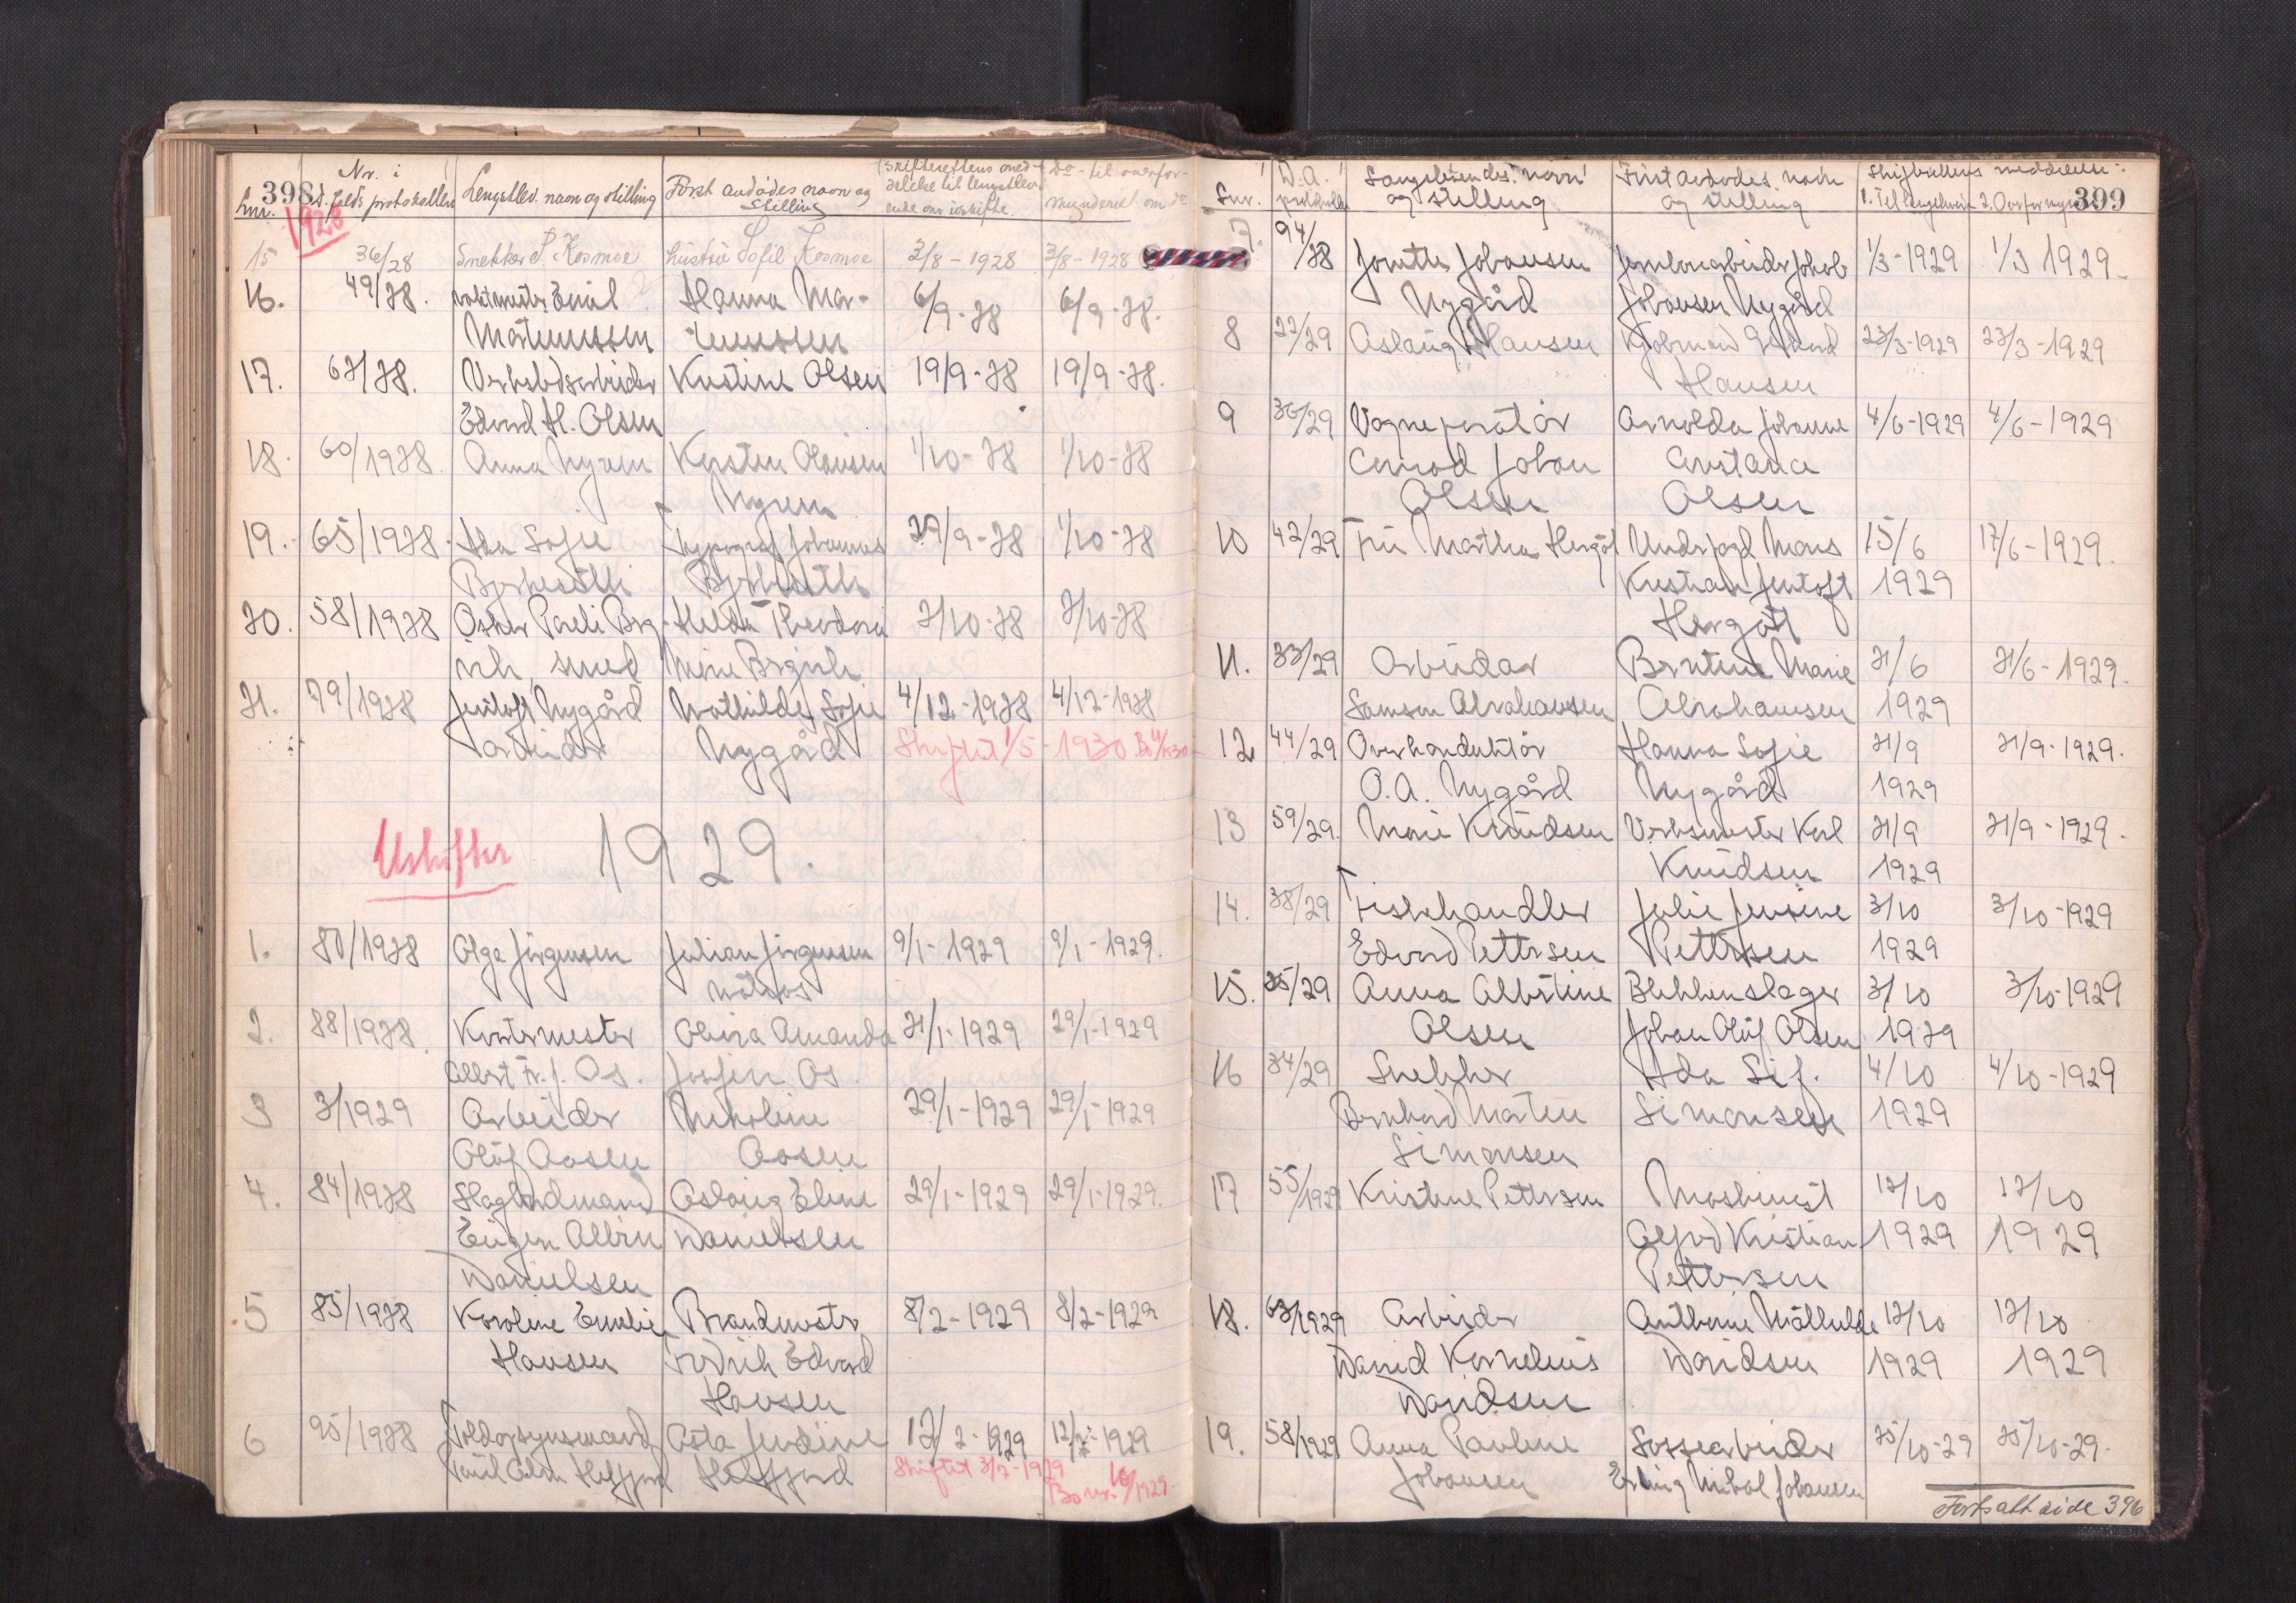 398
Nr. i
Lnr. d.felds protokollen Lengstlev. navn og stilling Först avdödes navn og stilling
Skifterettens meddelelse til lengstlevende om uskifte. Do - til overformynderiet om do
1928
15 36/28 Snekker P. Kosmoe Hustru Sofie Kosmoe 3/8 - 1928 3/8 - 1928
16. 49/28. Emil Hanna Mar- 6/9 - 28 6/9 - 28.
Martinussen tinussen
17. 67/28. Verkstedsarbeider Kristine Olsen 19/9 - 28 19/9 - 28.
Edvard H. Olsen
18. 60/1928. Anna Nyrem Kersten Olausen 1/10 - 28 1/10 - 28
Nyrem
19. 65/1928. Ida Sofie typograf Johannes 29/9 - 28 1/10 - 28
Bjerkesth Bjerkseth
20. 58/1928 Oskar Pareli Brg- Hilda Theodora 2/10 - 28 2/10 - 28
smed
21. 79/1928 Jentoft Nygård Mathilde Sofie 4/12 - 1928 4/12 - 1928
arbeider Nygård Skiftet 1/5 - 1930.
Uskifter 1929.
1. 80/1928 Olga Jörgensen Julian Jörgensen 9/1 - 1929 9/1 - 1929.
matros
2. 88/1928 Kvartermester Olvira Amanda 21/1 - 1929 29/1 - 1929
Albert Fr. J. Os. Josefin Os.
3 3/1929 Arbeider Nikoline 29/1 - 1929 29/1 - 1929
Olüf Aasen Aasen
4. 84/1928 Aslaug Eline 29/1 - 1929 29/1 - 1929.
Eugen Albin Danielsen
Danielsen
5 85/1928 Karoline Emelie Brandmester 8/2 - 1929 8/2 - 1929
Hansen Fredrik Edvard
Hansen
6 95/1928 Toldopsynsmand Asta Jendine 12/2 - 1929 12/2 - 1929
Skiftet 3/7 - 1929
Bo nr. 10/1929.
399
Lnr. D.A. protokoll Lengstlevendes navn og stilling Först avdödes navn og stilling Skifterettens meddelelse:
1. Til lengstlevende 2. Overformynd
7. 94/28 Jonette Johansen Jernbanearbeider Jakob 1/3 - 1929 1/3 1929.
Nygård Johansen Nygård
8 22/29 Aslaug Hansen Gerhard 23/3 - 1929 23/3 - 1929
Hansen
9 36/29 Vognreparatør Arnolda Johanne 4/6 - 1929 4/6 - 1929
Conrad Johan Constance
Olsen Olsen
10 42/29 Fru Martha Hergot Underfogd Mons 15/6 17/6 - 1929.
Kristian Jentoft 1929
Hergot
11. 33/29 Arbeider Berntine Marie 21/6 21/6 - 1929.
Samson Abrahamsen Abrahamsen 1929
12 44/29 Overkonduktör Hanna Sofie 21/9 21/9 - 1929.
O.A. Nygård Nygård 1929
13 59/29. Marie Knudsen Verksmester Karl 21/9 21/9 - 1929.
Knudsen 1929
14. 38/29 Fiskehandler Julie Jensine 3/10 3/10 - 1929
Edvard Pettersen Pettersen 1929
15. 25/29 Anna Albertine Blikkenslager 3/10 3/10 - 1929
Olsen Johan Oluf Olsen 1929
16 34/29 Snekker Ida Sif. 4/10 4/10 - 1929
Bernhard Martin Simonsen 1929
Simonsen
17 55/1929 Kristine Pettersen Maskinist 12/10 12/10
Alfred Kristian 1929 1929
Pettersen
18. 63/1929 Arbeider Anthonie Mathilde 12/10 12/10
David Kornelius Davidsen 1929 1929
Davidsen
19. 58/1929 Anna Pauline Lossearbeider 25/10 - 29 25/10 - 29.
Johansen Erling Mikal Johansen
Fortsatt side 396